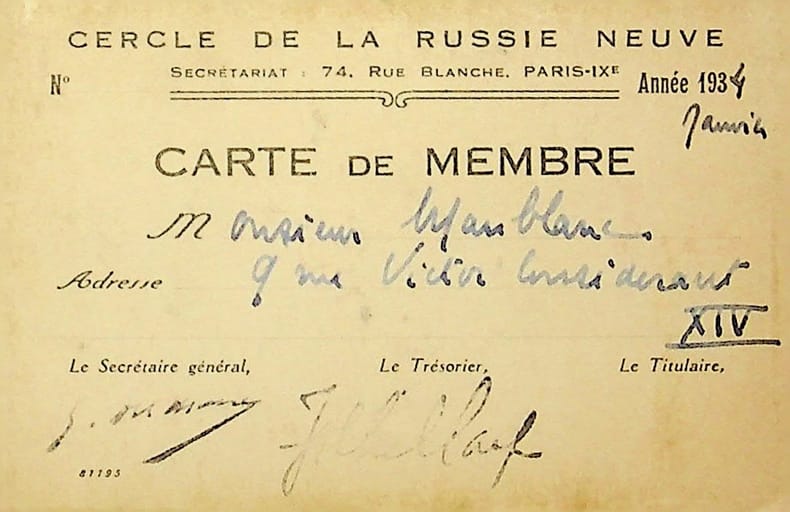 CERCLE DE LA RUSSIE NEUVE
SECRÉTARIAT : 74, RUE BLANCHE, PARIS-IXE
No
Année 1934
Janvier
CARTE DE MEMBRE
Monsieur
Adresse 9 rue Victor Considerant
XIV
Le Secrétaire général, Le Trésorier, Le Titulaire,
81195